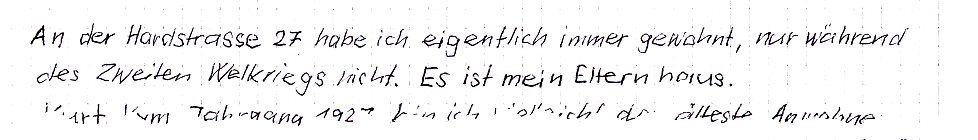 An der Hardstrasse 27 habe ich eigentlich immer gewohnt, nur während
des Zweiten Welkriegs nicht. Es ist mein Elternhaus.
Jahrgang 1927 bin ich vielleicht der älteste